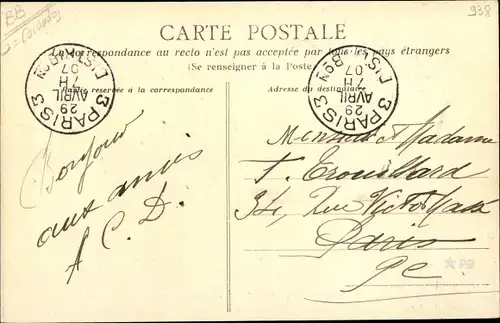 BB
938
CARTE POSTALE
La correspondance au recto n'est pas acceptée par tous les pays étrangers
(Se renseigner à la Poste)
Partie réservée à la correspondance
Adresse du destinataire
3 PARIS 3
29
AVRIL
7H
07
DIST. BON
3 PARIS 3
29
AVRIL
7H
07
DIST. BON
Bonjour
aux amis
A C. D.
Monsieur et Madame
F. Trouillard
34, Rue Victor Massé
Paris
PB